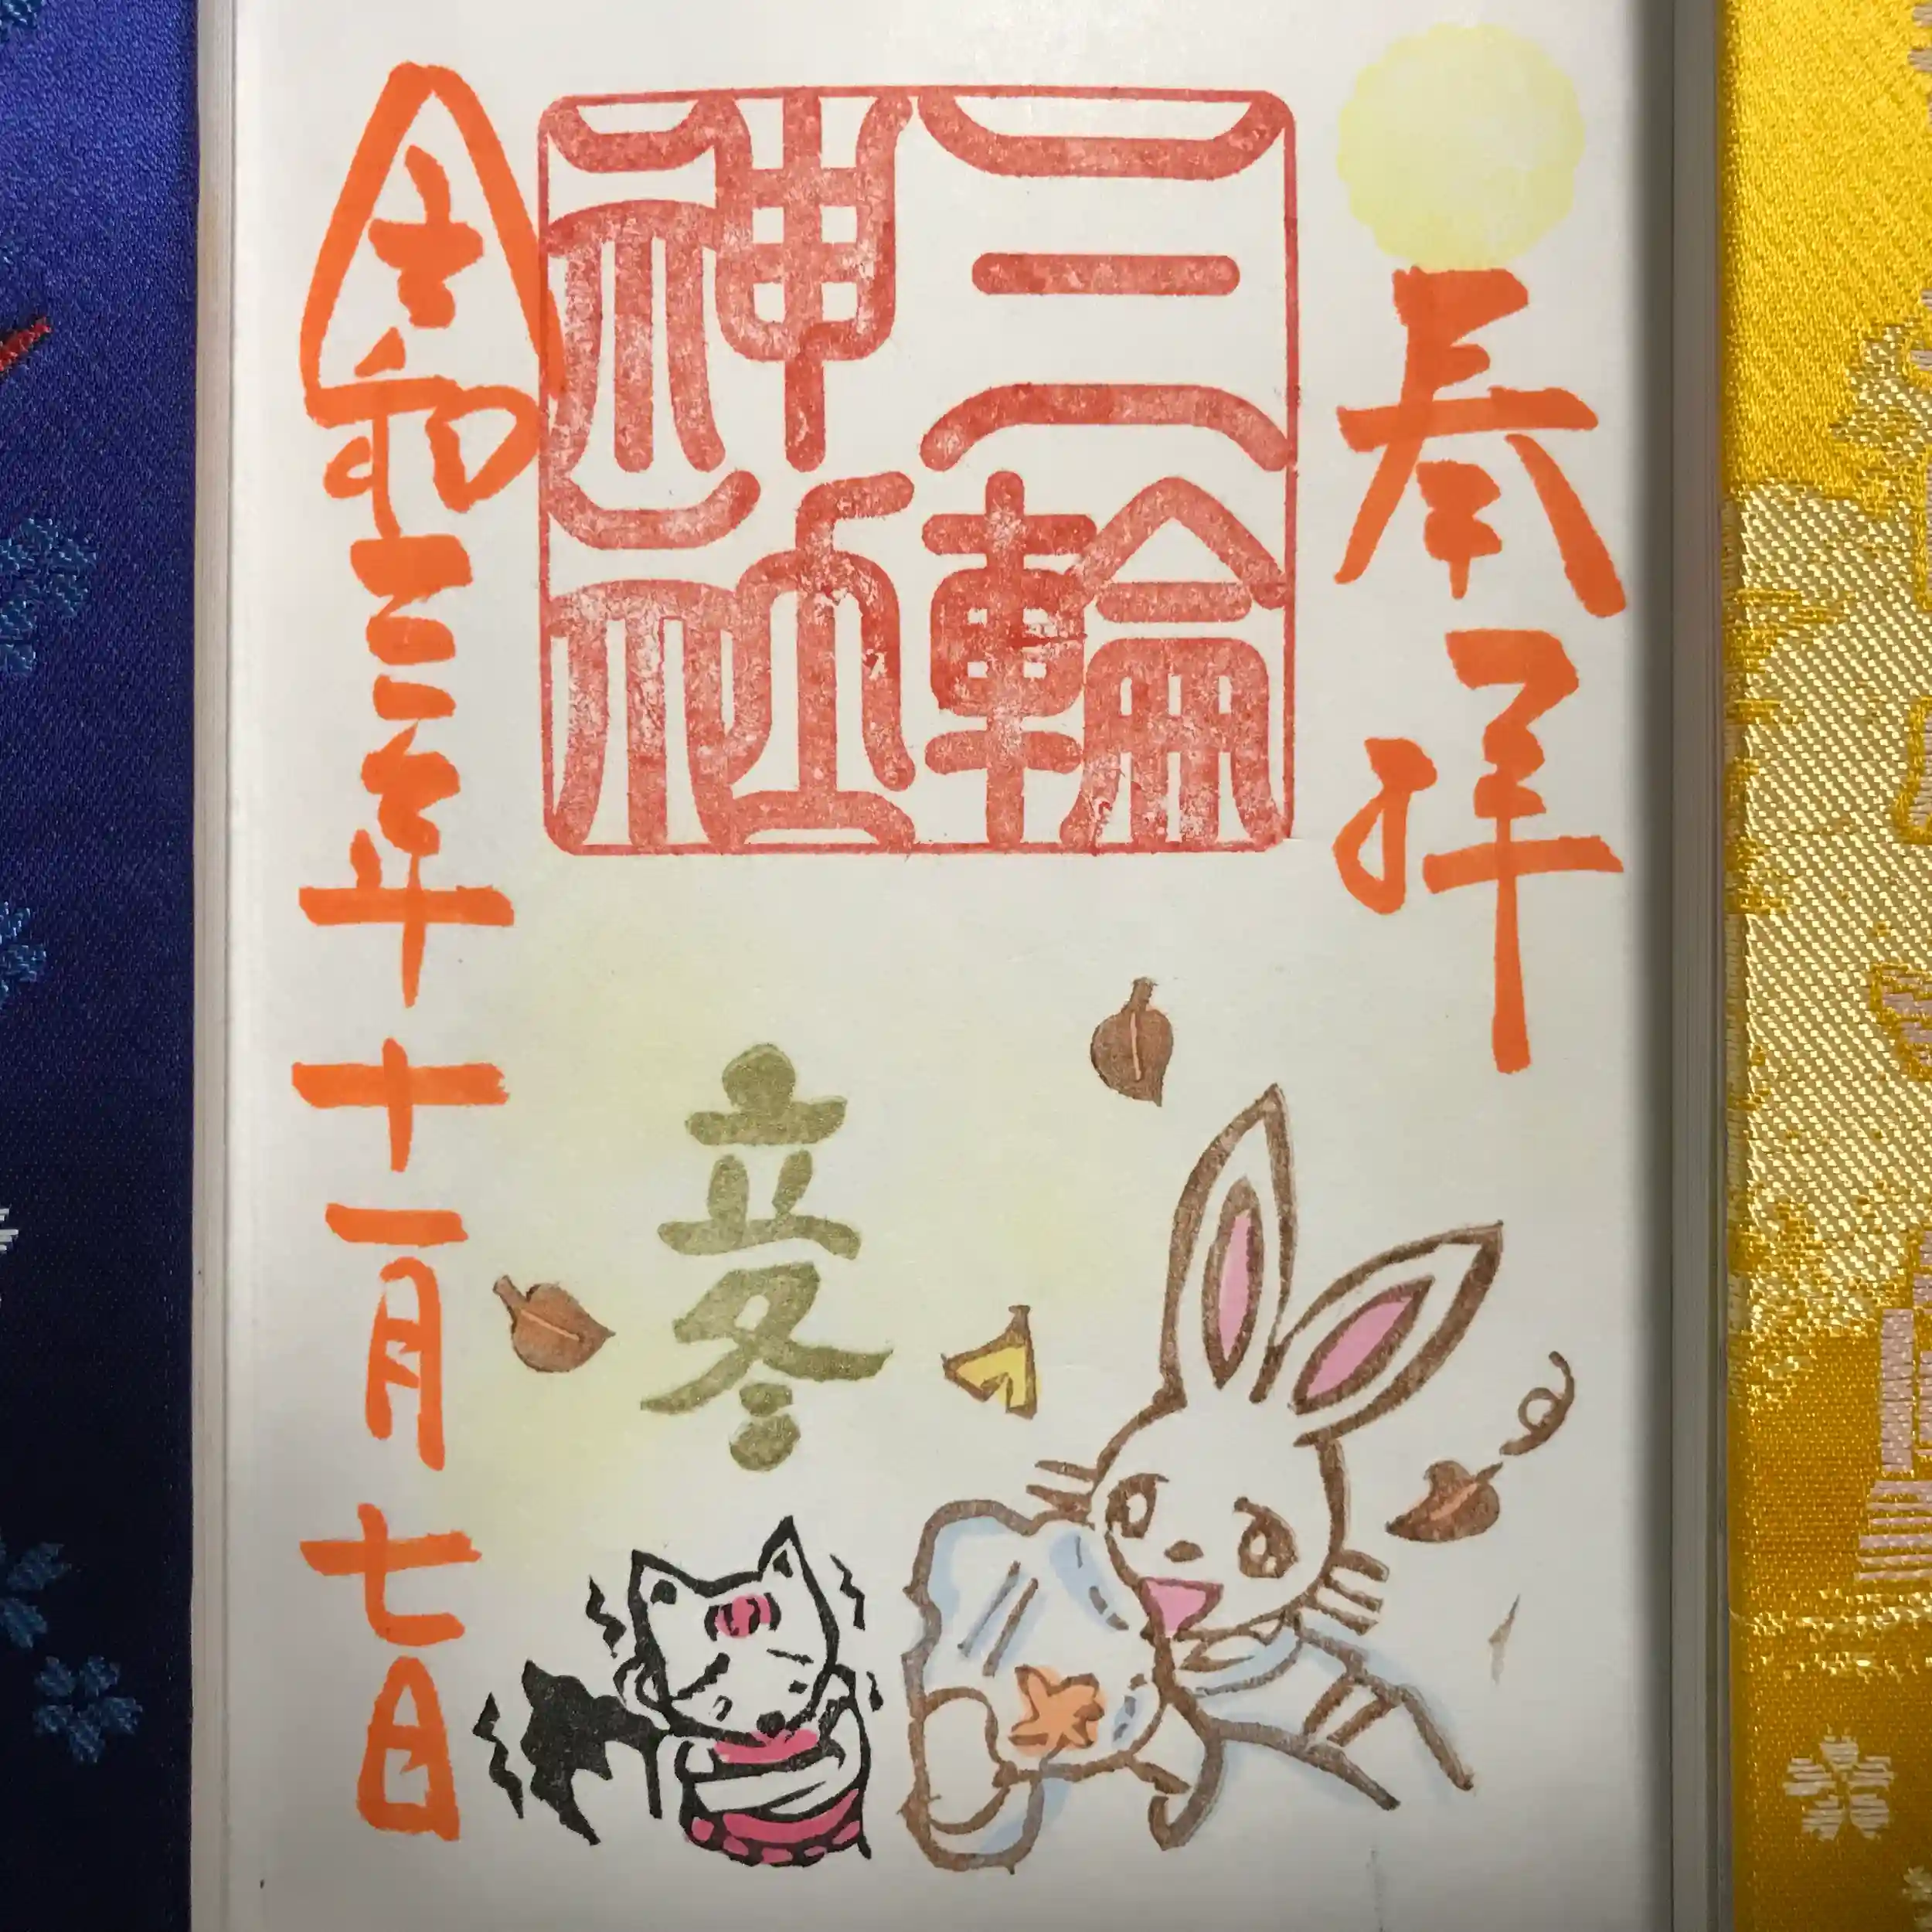 奉拝
三輪
神社
立冬
令和三年十一月七日